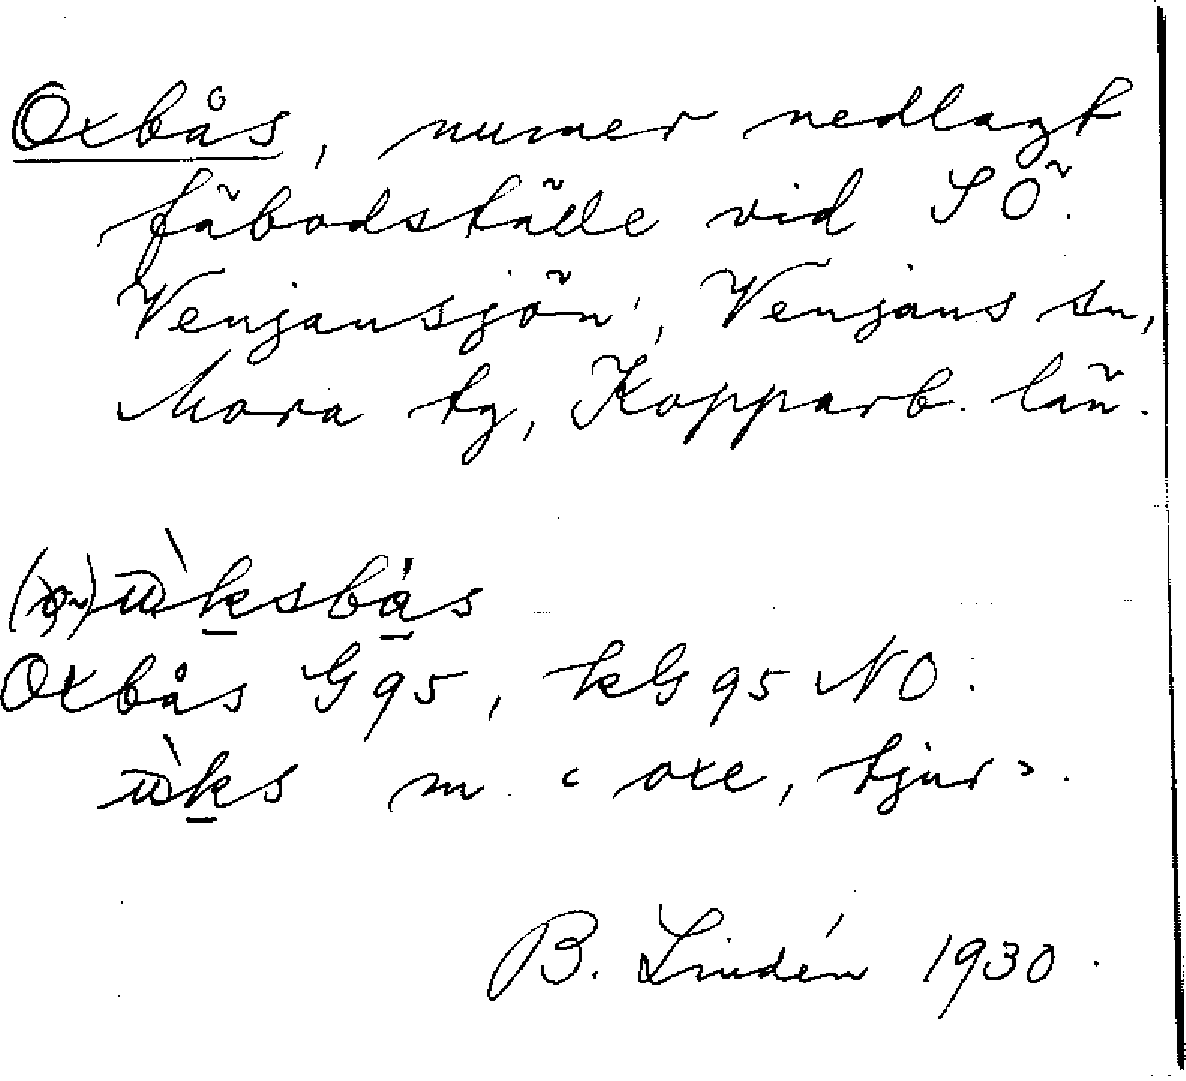 Oxbås, numer nedlagt
fäbodställe vid SÖ.
Venjansjön, Venjans sn,
Mora tg, Kopparb. län.
ùksbás
Oxbås G95, kG95 NO.
ùks m. ‹ oxe, tjur ›.
B. Lindén 1930.